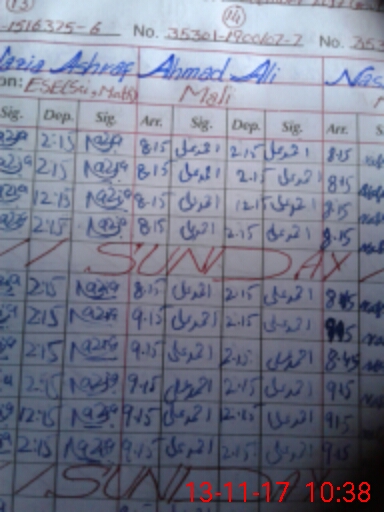 (13) (14)
-1516375-6 No. 35301-1900107-7 No. 353
Nazia Ashraf Ahmad Ali Nas
on: ESE(Sci, Math) Mali
Sig. Dep. Sig. Arr. Sig. Dep. Sig. Arr.
2:15 Nazia 8.15 احمد علی 2.15 احمد علی 8.15
Nazia 2.15 Nazia 8.15 احمد علی 2.15 احمد علی 8.15
Nazia 12:15 Nazia 8.15 احمد علی 12.15 احمد علی 8.15
2:15 Nazia 8.15 احمد علی 2.15 احمد علی 8.15
SUNDAY
2:15 Nazia 8.15 احمد علی 2.15 احمد علی
2:15 Nazia 9.15 احمد علی 2.15 احمد علی
2:15 Nazia 9.15 احمد علی 2.15 احمد علی 8.45
Nazia 9.15 احمد علی 2.15 احمد علی 9.15
12:15 Nazia 9.15 احمد علی 12.15 احمد علی 9.15
2:15 Nazia 9.15 احمد علی 2.15 احمد علی 9.15
SUNDAY
13-11-17 10:38